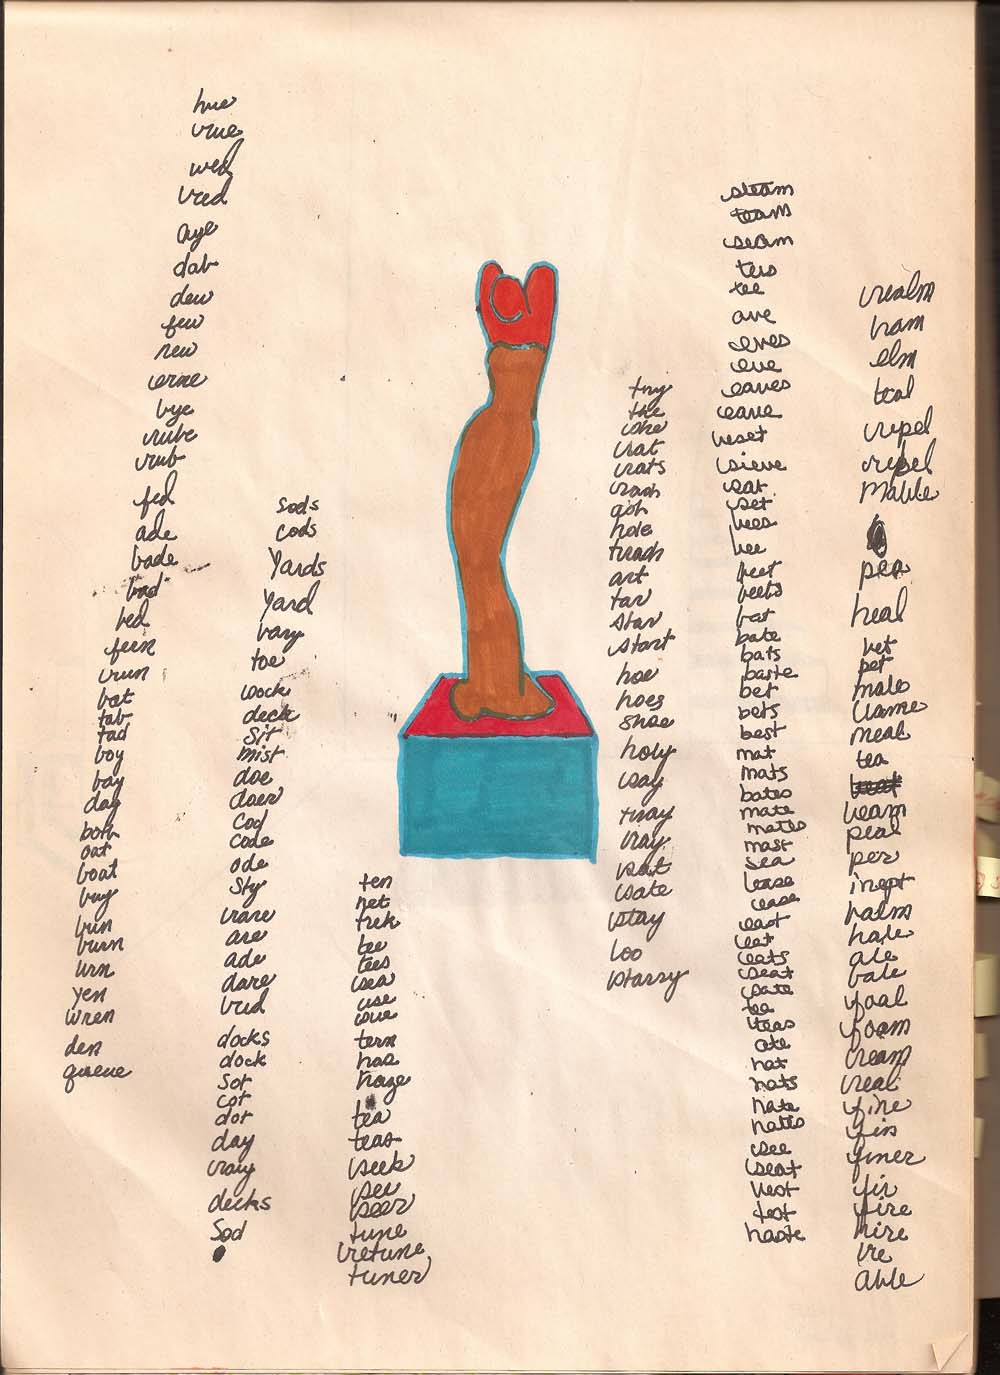 hue
rue
wed
red
aye
dab
dew
few
new
erne
bye
rube
rub
fed
ade
bade
bad
bed
feen
run
bat
tab
tad
boy
bay
day
both
oat
boat
buy
bun
burn
urn
yen
wren
den
queue
sods
cods
Yards
Yard
bary
toe
sock
deck
sit
mist
doe
doer
cod
code
ode
sty
rare
are
ade
dare
docks
dock
sot
cot
dot
day
decks
Sod
ten
net
trek
tee
tees
sea
use
sue
tern
has
haze
tea
teas
seek
see
seer
tune
retune
tuner
try
the
she
rat
rats
rash
gosh
hole
trash
art
tar
star
start
hoe
hoes
shoe
holy
say
tray
ray
sat
sate
stay
loo
starry
steam
team
seam
tee
ave
eves
eve
eaves
leave
reset
sieve
sat
set
bees
bee
beet
beets
bat
bate
bats
baste
bet
bets
best
mat
mats
bates
mate
mates
mast
sea
lease
ease
east
eat
eats
seat
sate
tea
teas
ate
hat
hats
hate
hates
see
seat
test
haste
realm
ram
elm
teal
repel
Mable
pea
heal
pet
male
lame
meal
tea
peal
per
inept
balm
hale
ale
bale
foal
foam
cream
real
fine
fin
finer
fir
fire
hire
ire
Able